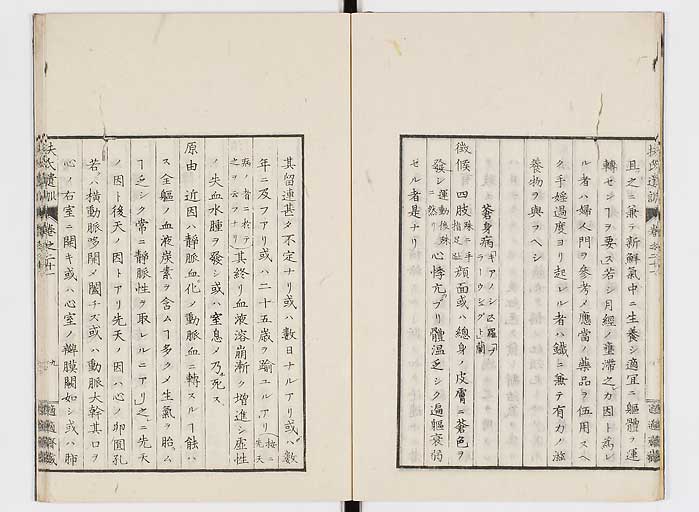 且之ニ兼テ新鮮氣中ニ生養シ適宜ニ軀體ヲ運
轉セシヿヲ要ス若シ月經ノ壅滯之カ因ト為レ
ル者ハ婦人門ヲ參考メ應當ノ藥品ヲ伍用スヘ
ク手婬過度ヨリ起レル者ハ鐵ニ兼テ有力ノ滋
養物ヲ與フヘシ
蒼身病
徴候 四肢殊ニ手指足趾顔面或ハ總身ノ皮膚ニ蒼色ヲ
發シ運動後殊ニ然リ心悸亢ブリ體温乏シク遍軀衰弱
セル者是ナリ
其留連甚タ不定ナリ或ハ數日ナルアリ或ハ數
年ニ及フアリ或ハ二十五歳ヲ踰ユルアリ按ニ先天
病ノ者ニ於テ之ヲ云フナリ其終リ血液溶崩漸ク增進シ虛性
ノ失血水腫ヲ發シ或ハ窒息メ乃死ス
原由 近因ハ靜脈血化メ動脈血ニ轉スルヿ餘ハ
ス全軀ノ血液炭素ヲ含ムヿ多クメ生氣ヲ胎ム
ヿ乏シク常ニ靜脈性ヲ取レルニアリ之ニ先天
ノ因ト後天ノ因トアリ先天ノ因ハ心ノ卵圓孔
若ハ橫動脈哆開メ闔チズ或ハ動脈大幹其口ヲ
心ノ右室ニ開キ或ハ心室ノ瓣膜闕如シ或ハ肺
扶氏遺訓 卷之二十一
九